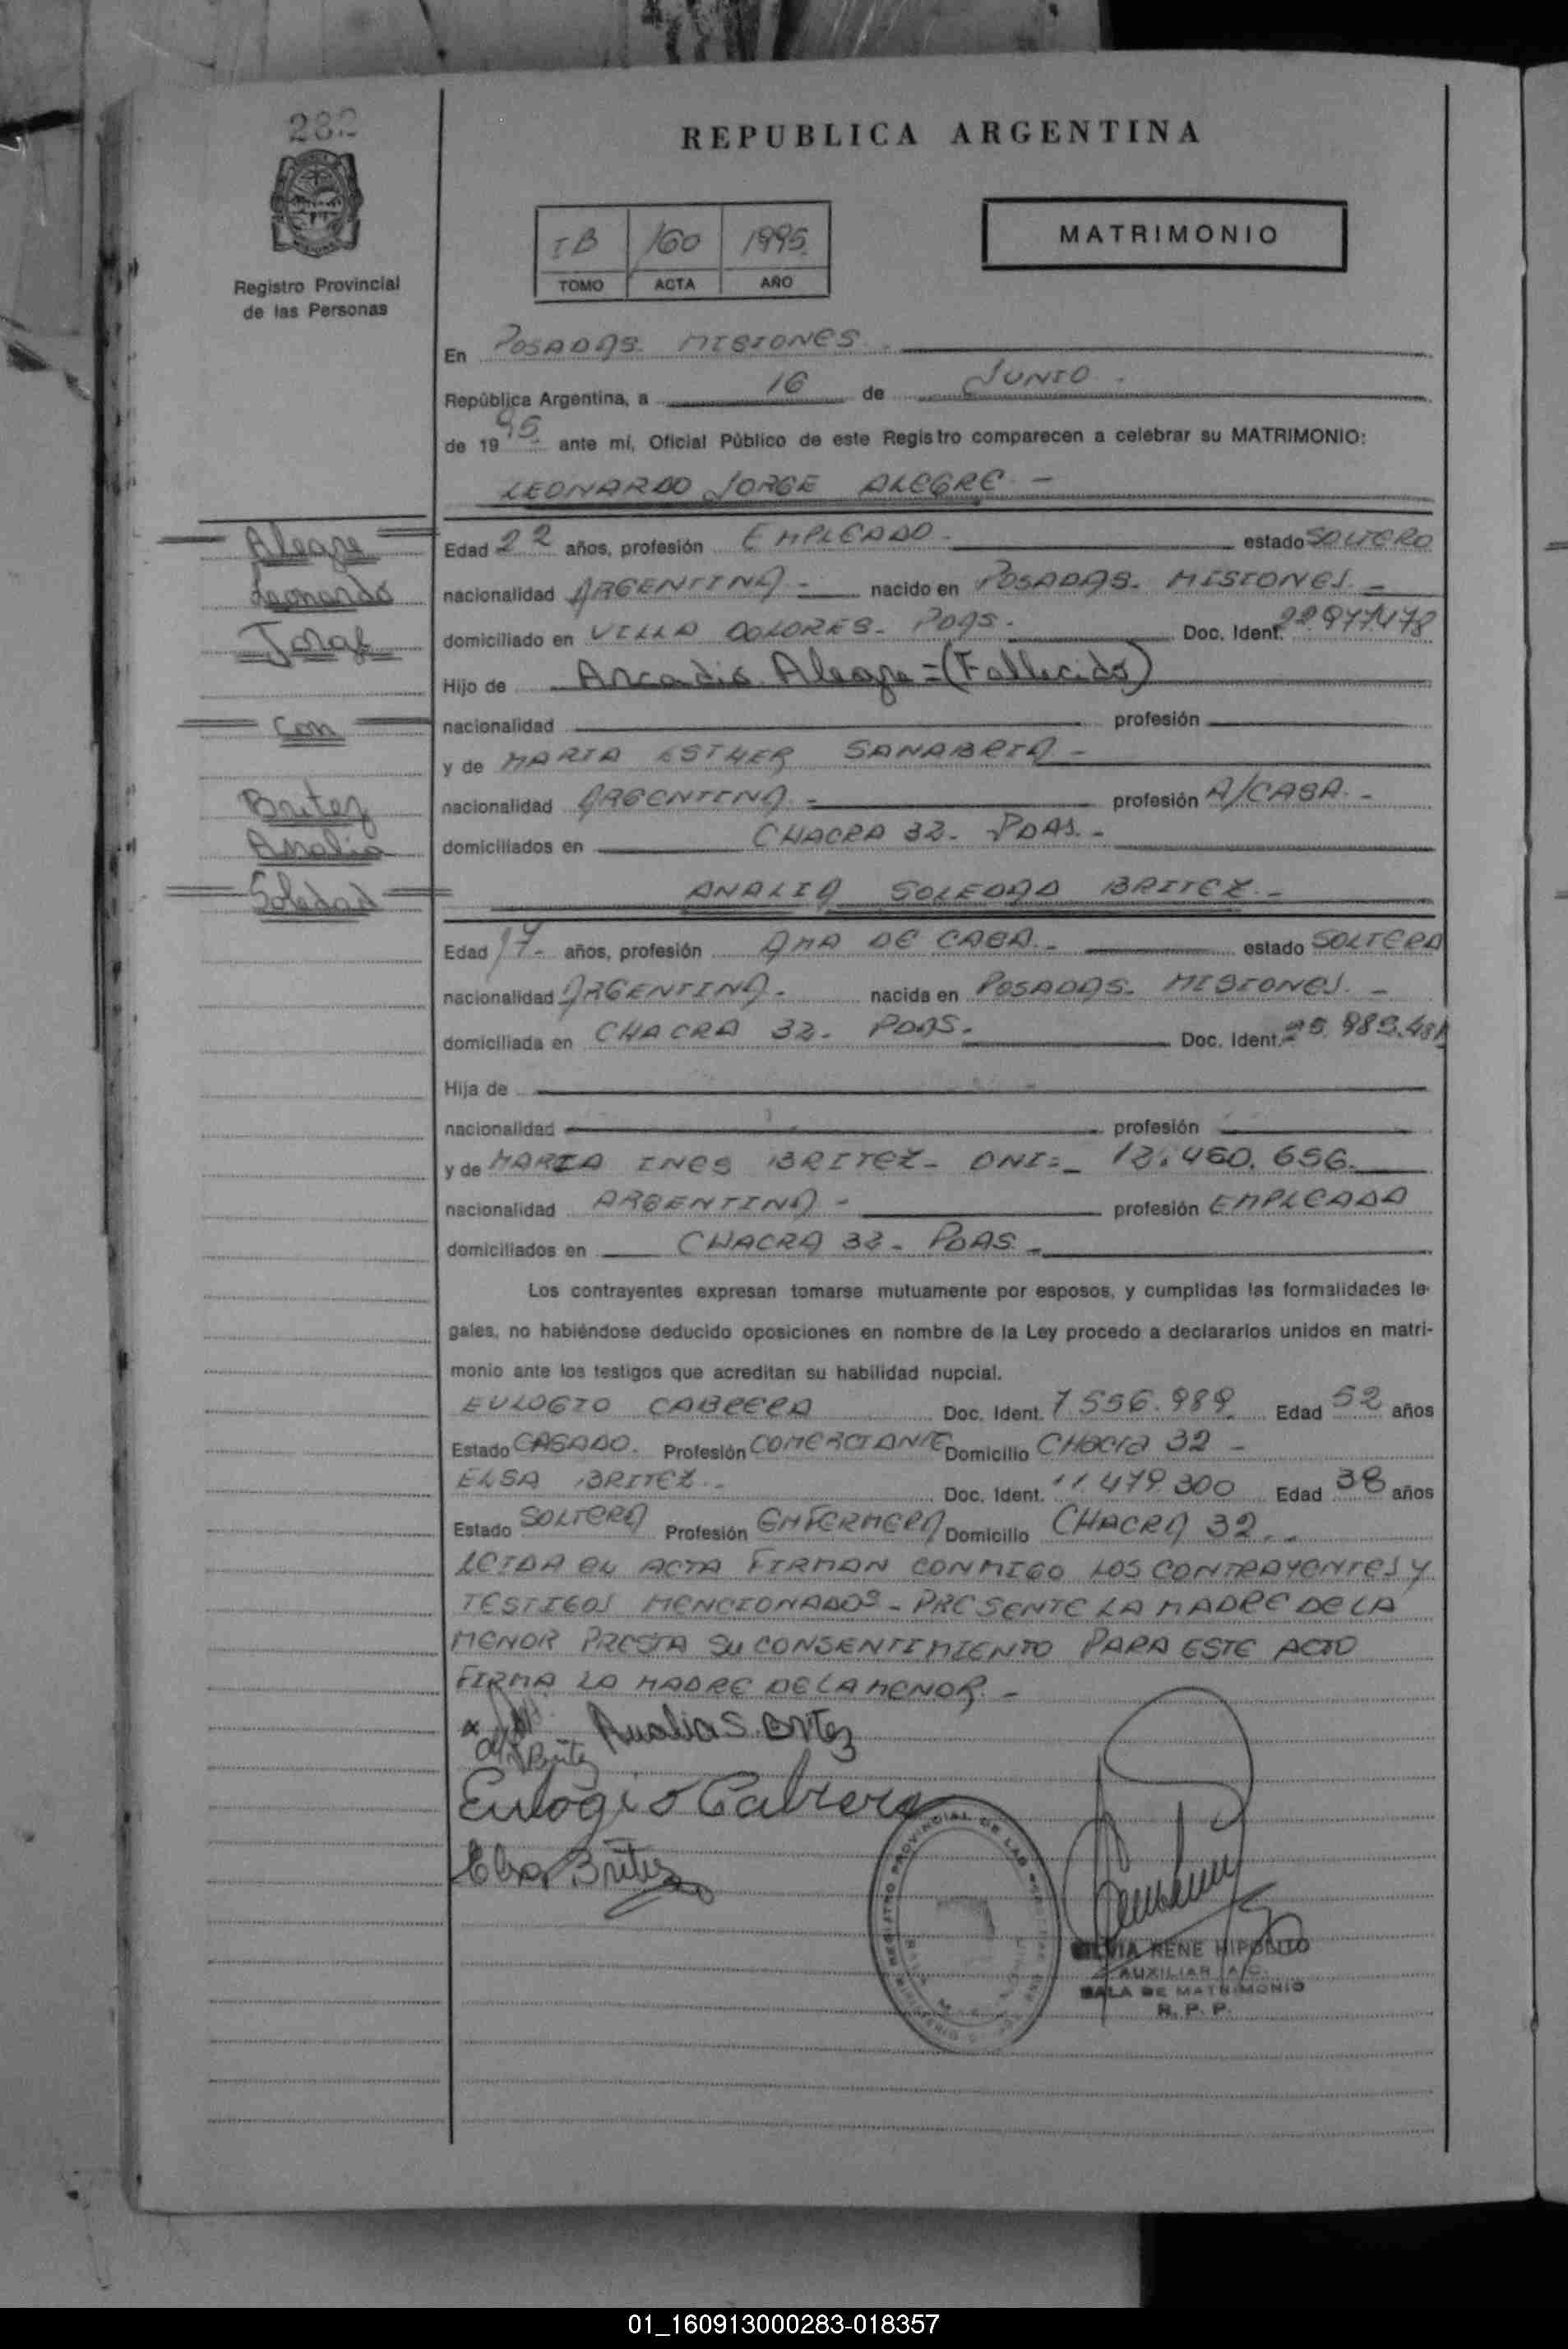 282
REPUBLICA ARGENTINA
Registro Provincial
de las Personas
IB 160 1995
TOMO ACTA AÑO
MATRIMONIO
En POSADAS. MISIONES.
República Argentina, a 16 de JUNIO.
de 1995 ante mí, Oficial Público de este Registro comparecen a celebrar su MATRIMONIO:
LEONARDO JORGE ALEGRE. -
Alegre
Leonardo
Jorge
Con
Britez
Analia
Soledad
Edad 22 años, profesión EMPLEADO. estado SOLTERO
nacionalidad ARGENTINA - nacido en POSADAS. MISIONES. -
domiciliado en VILLA DOLORES. PDAS. Doc. Ident. 22.977.478
Hijo de Arcadio Alegre = (Fallecido)
nacionalidad profesión
y de MARIA ESTHER SANABRIA -
nacionalidad ARGENTINA. - profesión A/CASA. -
domiciliados en CHACRA 32. PDAS. -
ANALIA SOLEDAD BRITEZ. -
Edad 17- años, profesión AMA DE CASA. - estado SOLTERA
nacionalidad ARGENTINA. nacida en POSADAS. MISIONES. -
domiciliada en CHACRA 32. PDAS. Doc. Ident. 25.989.481
Hija de
nacionalidad profesión
y de MARIA INES BRITEZ - DNI: - 12.460.656.
nacionalidad ARGENTINA - profesión EMPLEADA
domiciliados en CHACRA 32 - PDAS. -
Los contrayentes expresan tomarse mutuamente por esposos, y cumplidas las formalidades le-
gales, no habiéndose deducido oposiciones en nombre de la Ley procedo a declararlos unidos en matri-
monio ante los testigos que acreditan su habilidad nupcial.
EULOGIO CABRERA Doc. Ident. 7.556.989. Edad 52 años
Estado CASADO. Profesión COMERCIANTE Domicilio CHacra 32 -
ELSA BRITEZ. - Doc. Ident. 11.479.300 Edad 38 años
Estado SOLTERA Profesión ENFERMERA Domicilio CHACRA 32. -
LEIDA EL ACTA FIRMAN CONMIGO LOS CONTRAYENTES Y
TESTIGOS MENCIONADOS - PRESENTE LA MADRE DE LA
MENOR PRESTA SU CONSENTIMIENTO PARA ESTE ACTO
FIRMA LA MADRE DE LA MENOR. -
Analia S. Britez
Britez
Eulogio Cabrera
Elsa Britez
REGISTRO PROVINCIAL DE LAS
SILVIA RENE HIPOLITO
AUXILIAR A/C.
SALA DE MATRIMONIO
R. P. P.
01_160913000283-018357